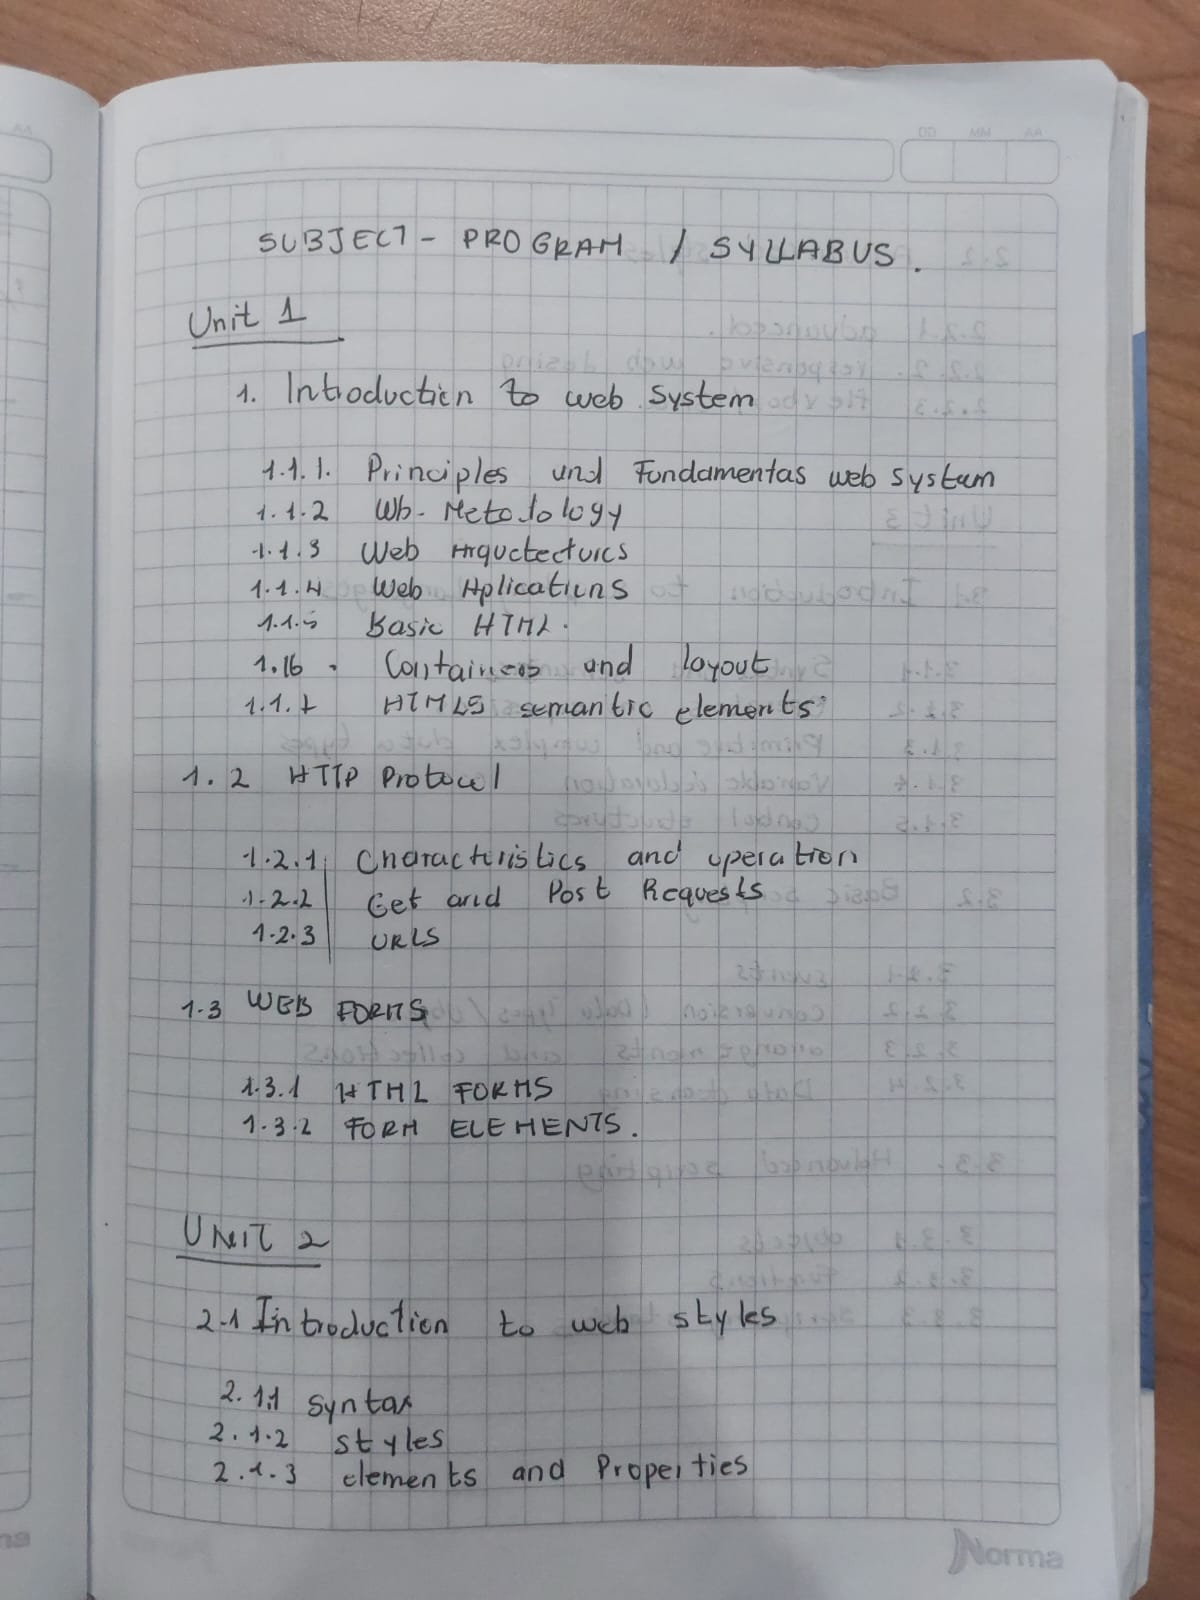 DD MM AA
SUBJECT - PROGRAM / SYLLABUS.
Unit 1
1. Introduction to web System
1.1.1. Principles und Fundamentas web system
1.1.2 Wb- Metodology
1.1.3 Web Arquctectures
1.1.4 Web Aplications
1.1.5 Basic HTML.
1.16 . Containers and layout
1.1.7 HTML5 semantic elements
1.2 HTTP Protocol
1.2.1 Characteristics and operation
1.2.2 Get and Post Requests
1.2.3 URLS
1.3 WEB FORMS
1.3.1 HTML FORMS
1.3.2 FORM ELEMENTS.
UNIT 2
2.1 Introduction to web styles
2.1.1 syntax
2.1.2 styles
2.1.3 elements and Properties
Norma